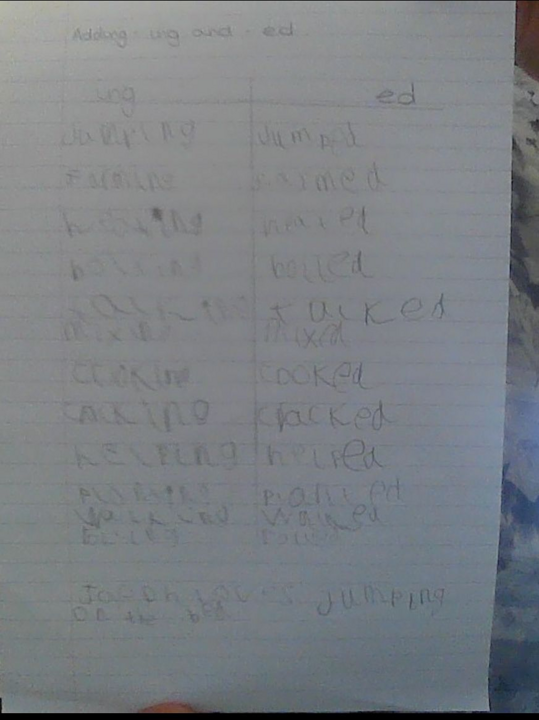 Adding -ing and -ed
ing ed
Jumping Jumped
Farming Farmed
heating heated
boiling boiled
talking talked
mixing mixed
cooking cooked
cracking cracked
helping helped
planting planted
walking walked
Jacob loves jumping
on the bed